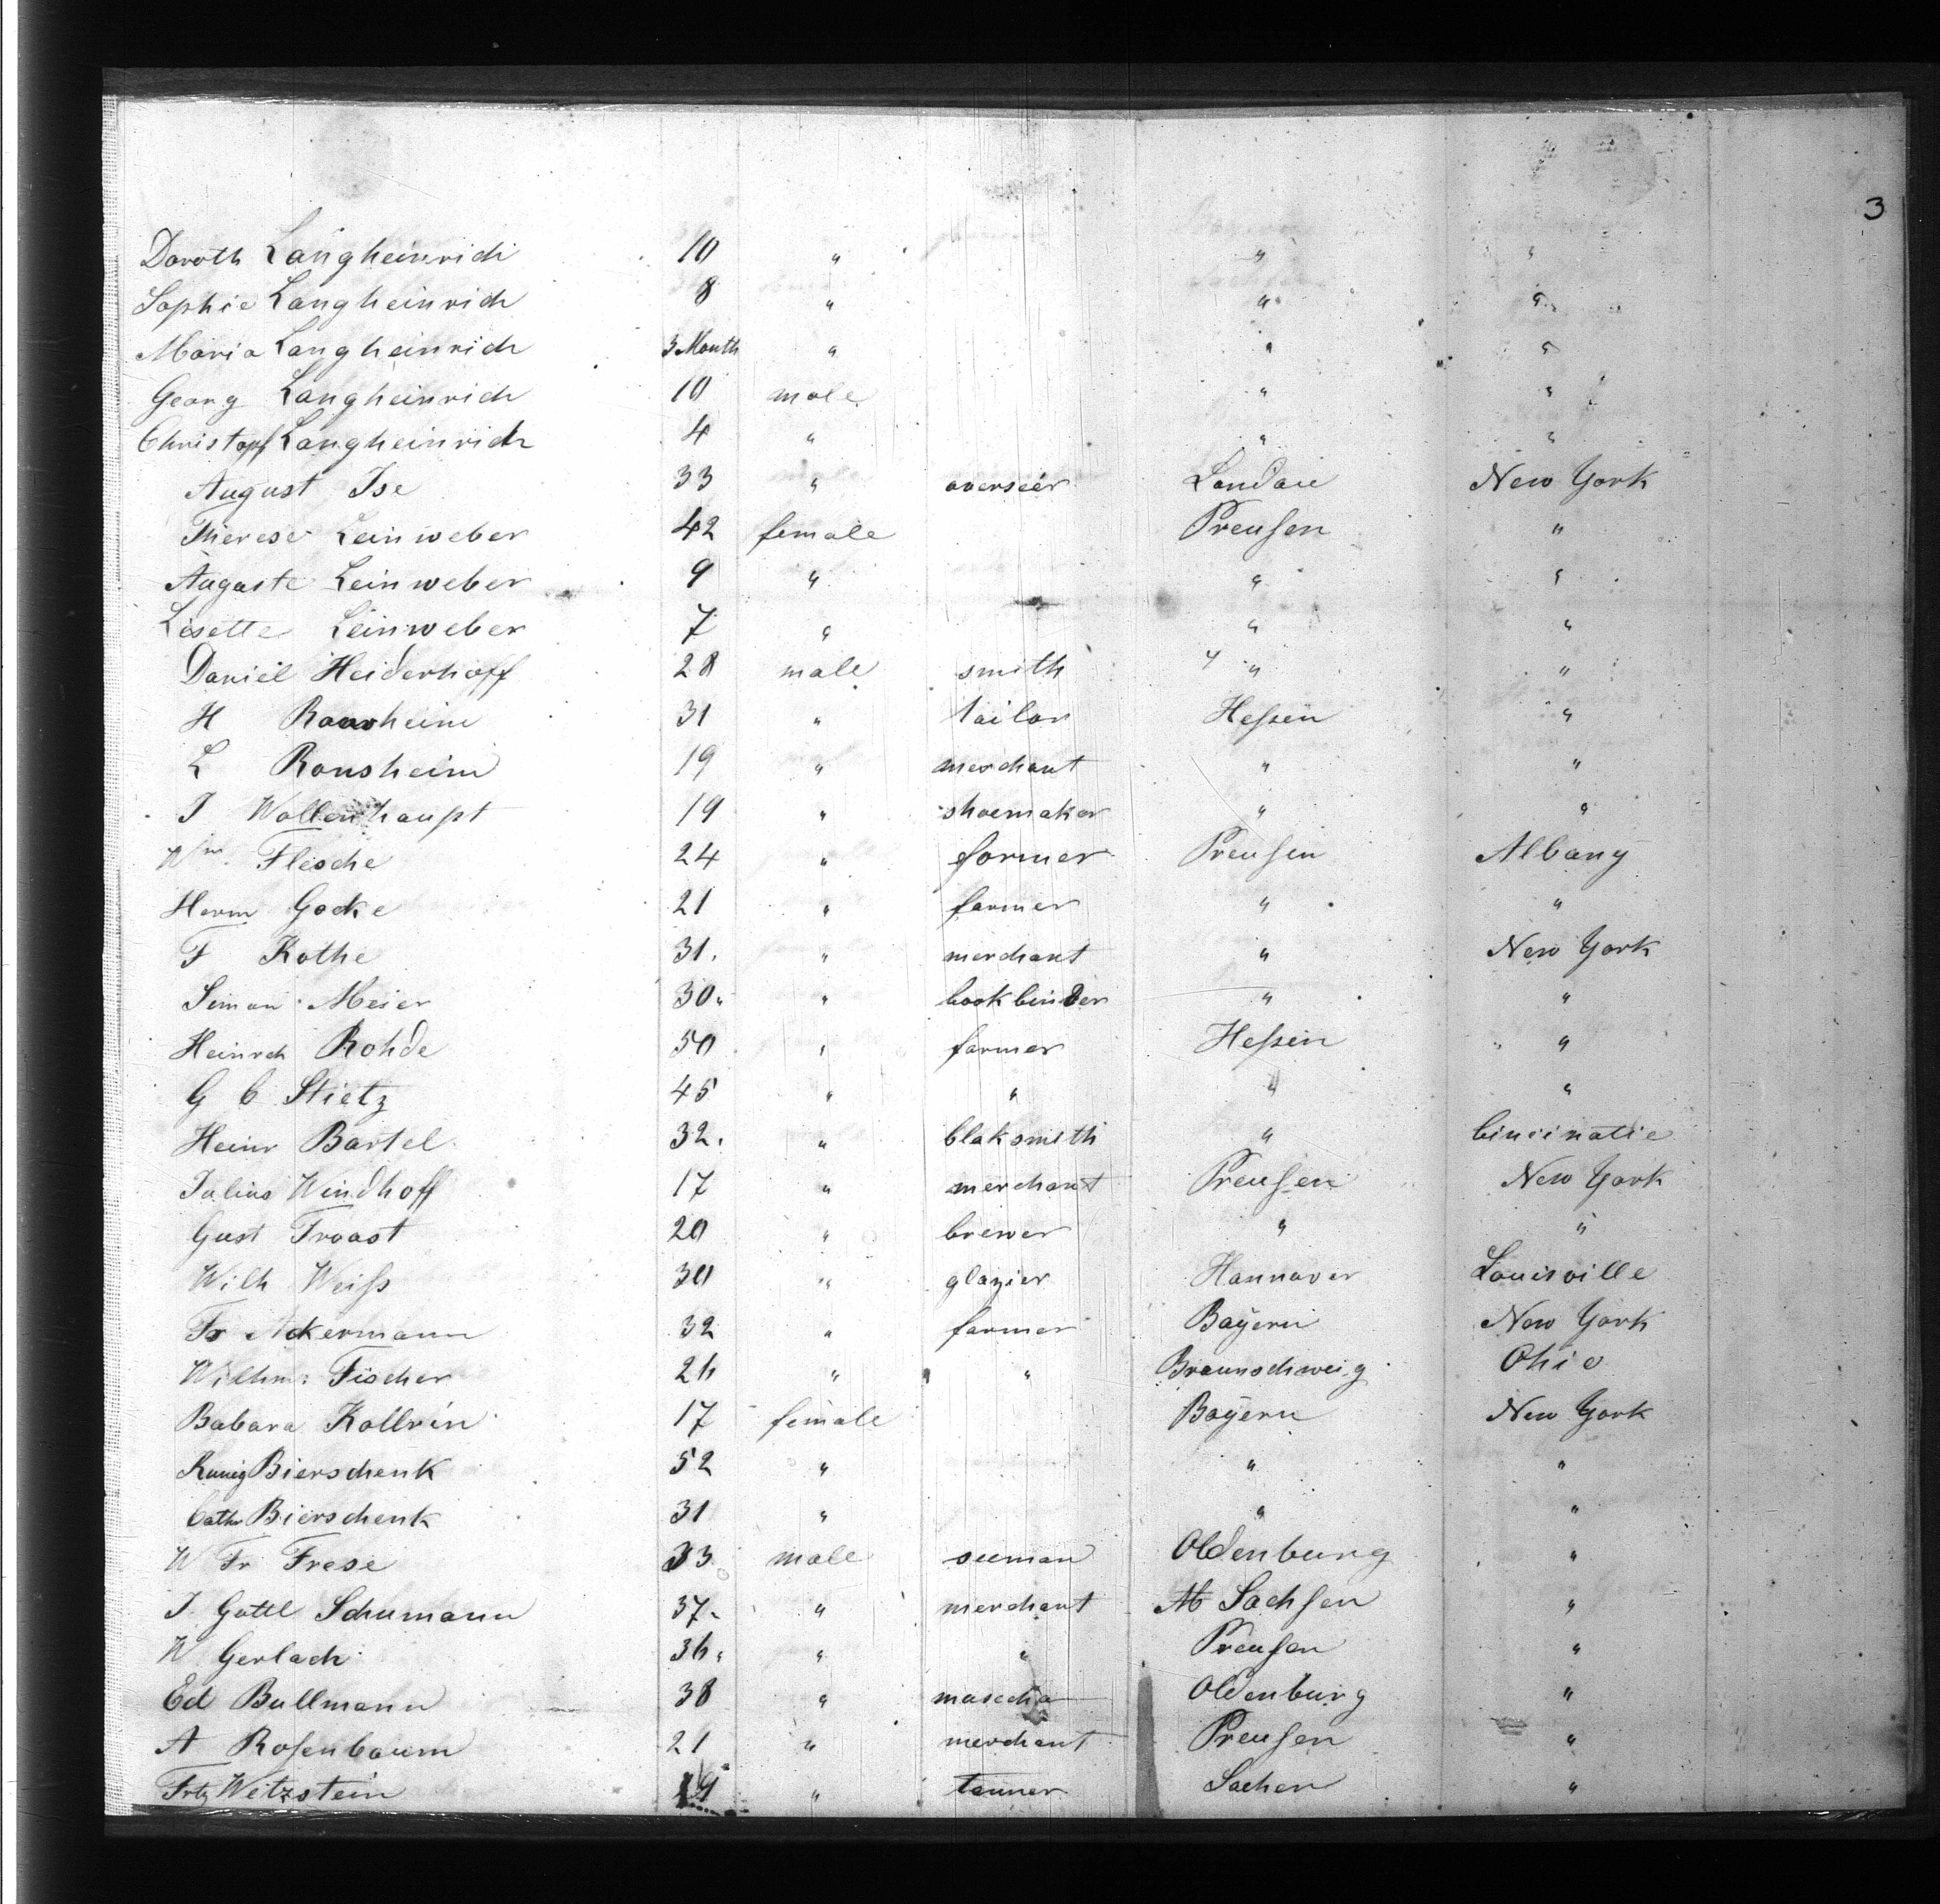 3
Doroth Langheinrich 10 " " "
Sophie Langheinrich 8 " " "
Maria Langheinrich 3 Month " " "
Georg Langheinrich 10 male " "
Christopf Langheinrich 4 " " "
August Ise 33 " overseer New York
Therese Leinweber 42 female Preußen "
Auguste Leinweber 9 " " "
Lisette Leinweber 7 " " "
Daniel Heiderhoff 28 male smith " "
H Ronsheim 31 " tailor Heßen "
L Ronsheim 19 " merchant " "
J Wollenhaupt 19 " shoemaker " "
Wm. Flesche 24 " farmer Preußen Albany
Herm Gocke 21 " farmer " "
F Kothe 31. " merchant " New York
Simon Meier 30 " bookbinder " "
Heinrch Rohde 50 " farmer Heßen "
G C Stietz 45 " " " "
Heinr Bartel 32. " blaksmith " Cincinatie
Julius Windhoff 17 " merchant Preußen New York
Gust Troost 20 " brewer " "
Wilh Weiß 30 " glazier Hannover Louisville
Fr Ackermann 32 " farmer Bayern New York
Wilhm: Fischer 26 " " Braunschweig Ohio
Babara Kollrin 17 female Bayern New York
Kunig Bierschenk 52 " " "
Cath Bierschenk 31 " " "
W Fr Frese 33 male seeman Oldenburg "
J. Gottl Schumann 37. " merchant Alt Sachsen "
W Gerlach 36. " " Preußen "
Ed Bullmann 38 " Oldenburg "
A Rosenbaum 21 " merchant Preußen "
Frtz Wetzstein 19 " tanner Sachen "